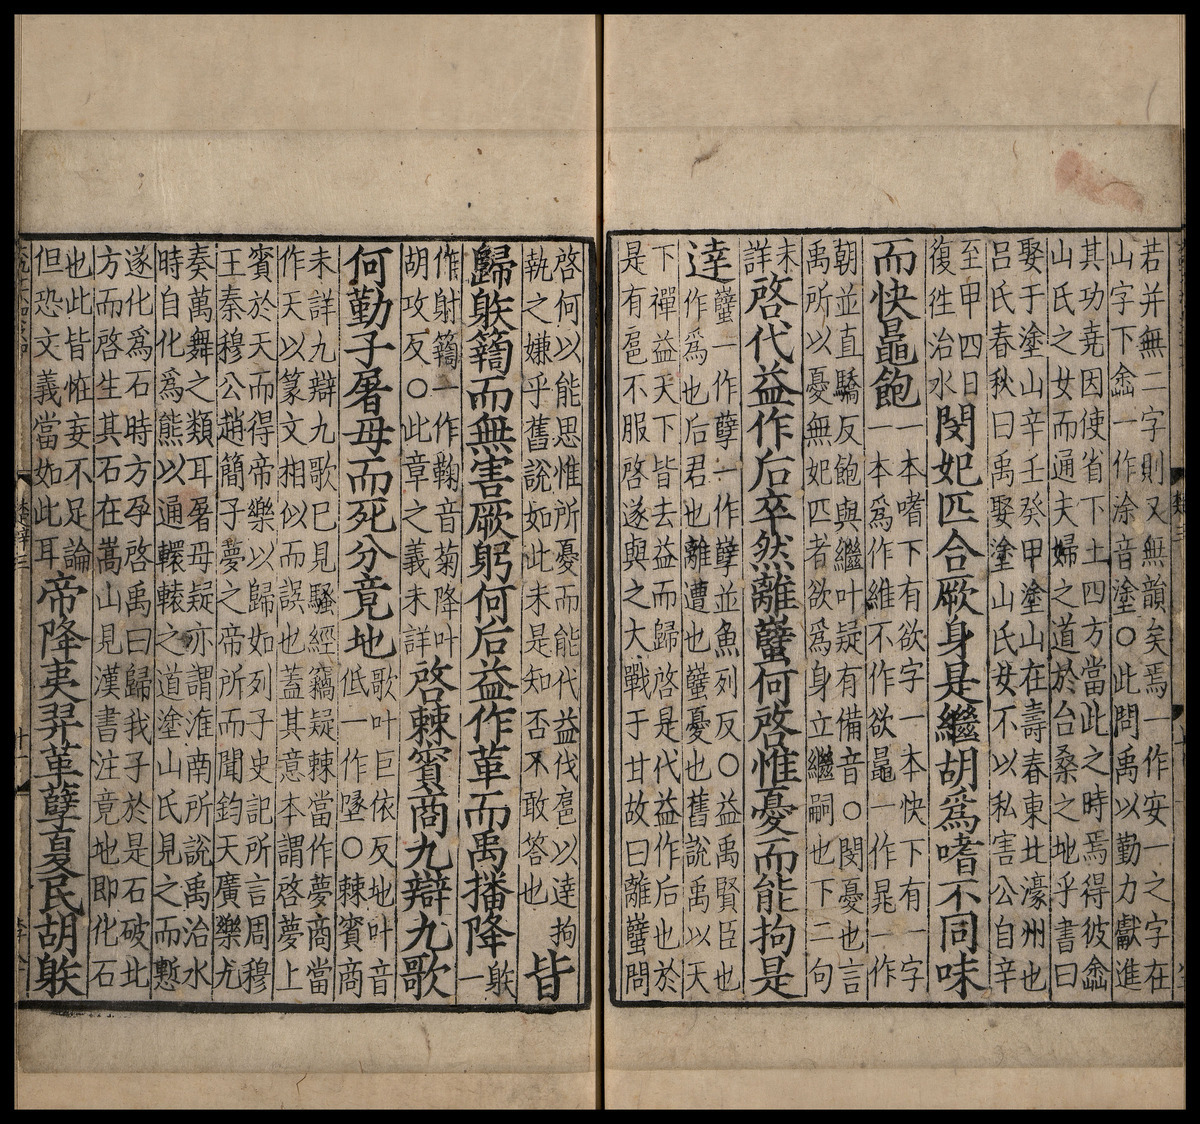 若并無二字則又無韻矣焉一作安一之字在
山字下嵞一作涂音塗○此問禹以勤力獻進
其功堯因使省下土四方當此之時焉得彼嵞
山氏之女而通夫婦之道於台桑之地乎書曰
娶于塗山辛壬癸甲塗山在壽春東北濠州也
呂氏春秋曰禹娶塗山氏女不以私害公自辛
至甲四日
復徃治水
閔妃匹合厥身是繼胡爲嗜不同味
而快鼂飽
一本嗜下有欲字一本快下有一字
一本爲作維不作欲鼂一作晁一作
朝並直驕反飽與繼叶疑有備音○閔憂也言
禹所以憂無妃匹者欲爲身立繼嗣也下二句
未
詳
啓代益作后卒然離蠥何啓惟憂而能拘是
達
蠥一作孽一作孼並魚列反○益禹賢臣也
作爲也后君也離遭也蠥憂也舊說禹以天
下禪益天下皆去益而歸啓是代益作后也於
是有扈不服啓遂與之大戰于甘故曰離蠥問
啓何以能思惟所憂而能代益伐扈以達拘
執之嫌乎舊說如此未是知否不敢答也
皆
歸䠶䉤而無害厥躬何后益作革而禹播降
䠶
一
作射䉤一作鞠音菊降叶
胡攻反○此章之義未詳
啓棘賓商九辯九歌
何勤子屠母而死分竟地
歌叶巨依反地叶音
低一作墬○棘賓商
未詳九辯九歌已見騷經竊疑棘當作夢商當
作天以篆文相似而誤也蓋其意本謂啓夢上
賓於天而得帝樂以歸如列子史記所言周穆
王秦穆公趙簡子夢之帝所而聞鈞天廣樂九
奏萬舞之類耳屠母疑亦謂淮南所說禹治水
時自化爲熊以通轘轅之道塗山氏見之而慙
遂化爲石時方孕啓禹曰歸我子於是石破北
方而啓生其石在嵩山見漢書注竟地即化石
也此皆恠妄不足論
但恐文義當如此耳
帝降夷羿革孽夏民胡䠶